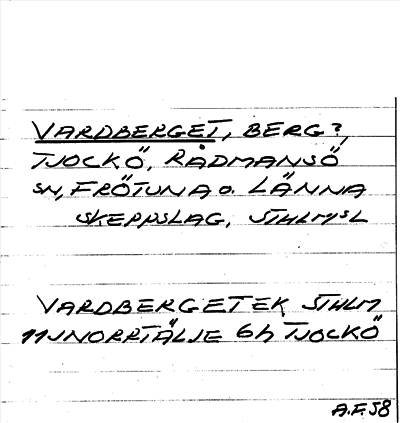 VARDBERGET, BERG?,
TJOCKÖ, RÅDMANSÖ
SN, FRÖTUNA O. LÄNNA
SKEPPSLAG, STHLMSL
VARDBERGET EK STHLM
11J NORRTÄLJE 6h TJOCKÖ
A.F. 58